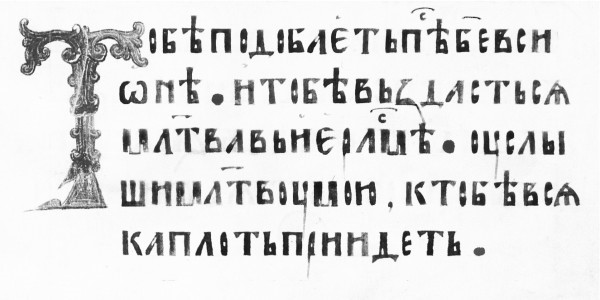 Тобѣ подобаєть пѣⷭ҇ б҃є в си
ѡнѣ. и тобѣ вьздастьсѧ
мл҃тва вь иєрⷭ҇лмѣ. оуслы
ши мл҃твоу мою, к тобѣ всѧ
ка плоть приидеть.